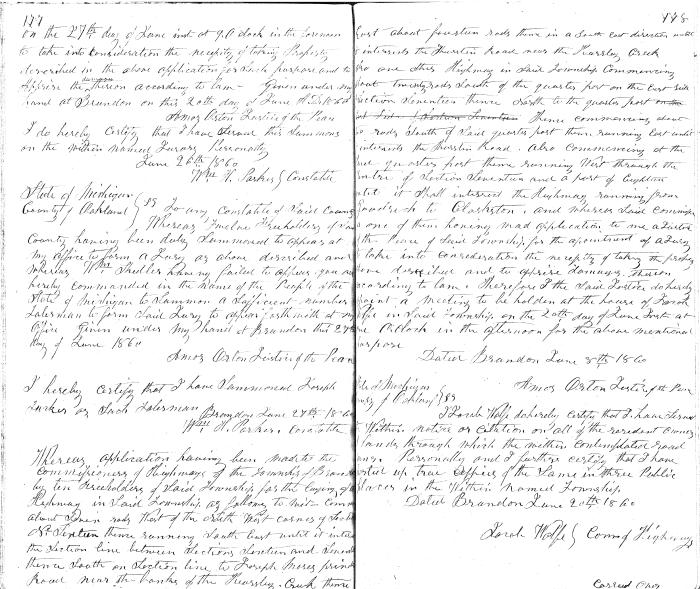 177
on the 27th day of June inst at 9 O clock in the forenoon
to take into consideration the necessity of taking Property
described in the above application for such purpose and to
apprise the person according to law - Given under my
hand at Brandon on this 20th day of June A D 1860
Amos Orton Justice of the Peac
I do hereby Certify that I have Served this Summons
on the within named Jurors Personally
June 26th 1860
Wm H. Parker Constable
State of Michigan
County of Oakland } SS To any Constable of Said County
Whereas Twelve Freeholders of Said
County having been duly Summoned to appear at
my office to form a Jury as above described and
whereas Wm having failed to appear you are
hereby commanded in the name of the People of the
State of Michigan to Summon a Sufficient number
Talerman to form Said Jury to appear forthwith at my
office Given under my hand at Brandon that 27th
day of June 1860
Amos Orton Justice of the Peac
I hereby Certify that I have Summoned Joseph
as Such Talerman
Brandon June 27th 1860
Wm H. Parker, Constable
Whereas application having been made to the
Commissioners of Highways of the Township of Brandon
by ten Freeholders of Said Township for the laying of a
Highway in Said Township as follows to wit - Comm
about Seven rods West of the North West corner of
No Sixteen thence running South East until it inter
the Section line between Sections Seventeen and
thence South on Section line to Joseph
Road near the banks of the Kearsley Creek thence
178
East about fourteen rods thence in a South East direction until
it intersects the Thurston Road near the Kearsley Creek
one other Highway in Said Township Commencing
about twenty rods South of the quarter post on the East side
Section Seventeen thence North to the quarter post
Thence commencing
rods South of Said quarter post thence running East until
intersects the Thurston Road. also Commencing at the
quarter post thence running West through the
centre of Section Seventeen and a part of Eighteen
until it Shall intersect the Highway running from
Goodrich to Clarkston, and whereas Said Commissi
one of them having mad application to me a Justice
the Peace of Said Township for the apointment of a Jury
take into consideration the necesity of taking the proper
described and to apprise Damages thereon
according to law. Therefore I the Said Justice do hereby
apoint a meeting to be holden at the house of Jacob
in Said Township on the 20th day of June Inst at
one O Clock in the afternoon for the above mentioned
purpose
Dated Brandon June 8th 1860
Amos Orton Justice of the Peac
State of Michigan
County of Oakland } SS
I Jacob Wolfe do hereby Certify that I have Served
Within notice or Citation on all of the resident owners
lands through which the within contemplated road
Personally and I further certify that I have
up true Coppies of the Same in three Public
places in the Within named Township
Dated Brandon June 20th 1860
Jacob Wolfe } Com of Highways
Carried Over